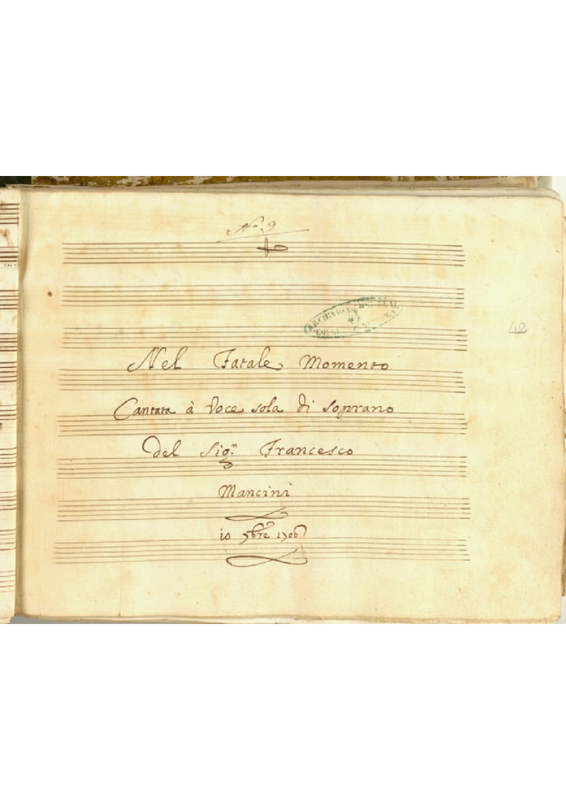 No. 9
ARCHIVIO
48
Nel Fatale Momento
Cantata à Voce sola di Soprano
Del Sig.r Francesco
Mancini
10 9bre 1706